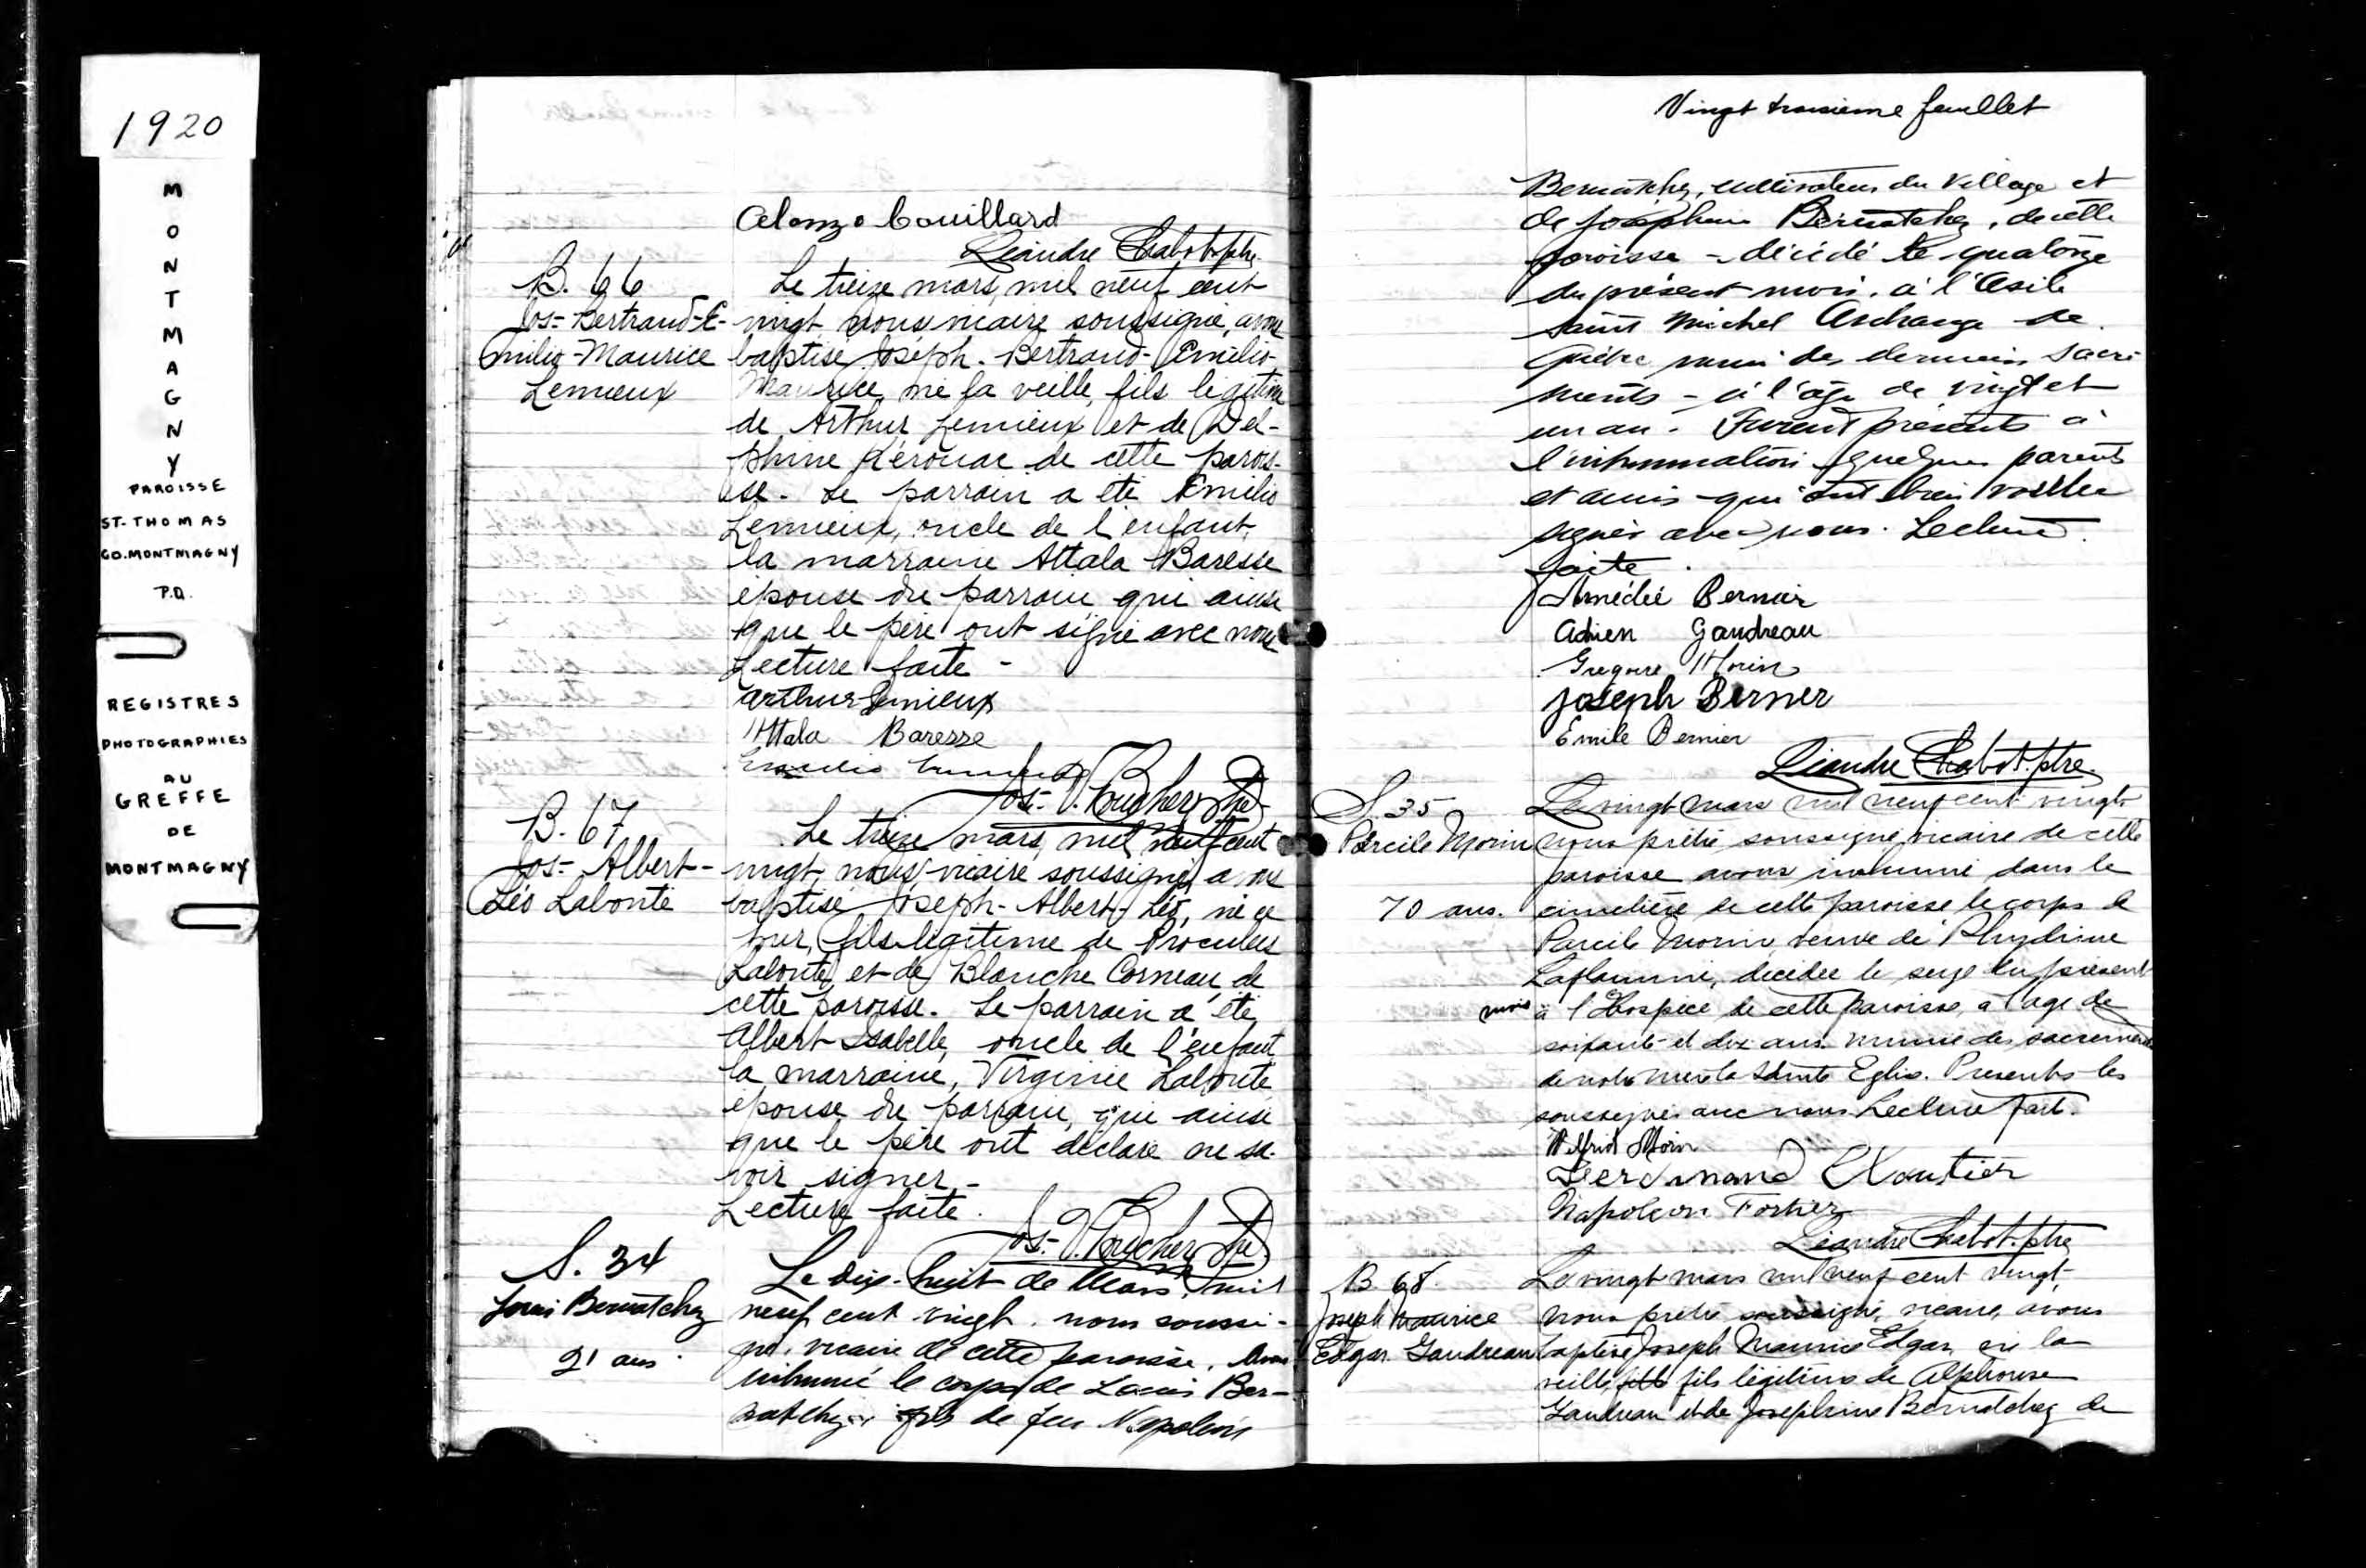 1920
MONTMAGNY
PAROISSE
ST-THOMAS
CO. MONTMAGNY
P.Q.
REGISTRES
PHOTOGRAPHIES
AU
GREFFE
DE
MONTMAGNY
Alonzo Couillard
Léandre Chabot ptre.
B. 66
Jos-Bertrand-E-
Emilio-Maurice
Lemieux
Le treize mars, mil neuf cent
vingt nous vicaire soussigné, avons
baptisé Joseph-Bertrand-Emilio-
Maurice, né la veille, fils légitime
de Arthur Lemieux et de Del-
phine Kérouac de cette parois-
se. Le parrain a été Emilio
Lemieux, oncle de l'enfant,
la marraine Attala Baresse
épouse du parrain qui ainsi
que le père ont signé avec nous
Lecture faite -
Arthur Lemieux
Attala Baresse
Emilio Lemieux
B. 67
Jos- Albert-
Léo Labonté
Le treize mars, mil neuf cent
vingt, nous vicaire soussigné, avons
baptisé Joseph-Albert-Léo, né ce
jour, fils légitime de Proculus
Labonté et de Blanche Corneau, de
cette paroisse. Le parrain a été
Albert Isabelle, oncle de l'enfant
la marraine, Virginie Labonté
épouse du parrain, qui ainsi
que le père ont déclaré ne sa-
voir signer -
Lecture faite.
S. 34
Louis Bernatchez
21 ans
Le dix-huit de Mars, mil
neuf cent vingt, nous soussi-
gné, vicaire de cette paroisse, avons
inhumé le corps de Louis Ber-
natchez, fils de feu Napoléon
Vingt troisième feuillet
Bernatchez, cultivateur du Village et
de Joséphine Bernatchez, de cette
paroisse - décédé le quatorze
du présent mois, à l'Asile
Saint Michel Archange de
Québec muni des derniers sacre-
ments - à l'âge de vingt et
un an - Furent présents à
l'inhumation quelques parents
et amis qui ont bien voulu
signer avec nous. Lecture
faite.
Amédée Bernier
Adrien Gaudreau
Gregoire Morin
Joseph Bernier
Emile Bernier
Léandre Chabot. ptre.
S. 35
Parcile Morin
70 ans.
Le vingt mars mil neuf cent vingt
nous prêtre soussigné, vicaire de cette
paroisse avons inhumé dans le
cimetière de cette paroisse le corps de
Parcile Morin, veuve de
Laflamme, décédée le seize du présent
mois à l'Hospice de cette paroisse, à l'age de
soixante et dix ans munie des sacrements
de notre mère la Sainte Eglise. Présents les
soussignés avec nous Lecture fait.
Wilfrid Morin
Ferdinand
Napoleon Fortier
Léandre Chabot. ptre
B 68.
Joseph Maurice
Edgar Gaudreau
Le vingt mars mil neuf cent vingt,
nous prêtre soussigné, vicaire, avons
baptisé Joseph Maurice Edgar, né la
veille, fils légitime de Alphonse
Gaudreau et de Joséphine Bernatchez de